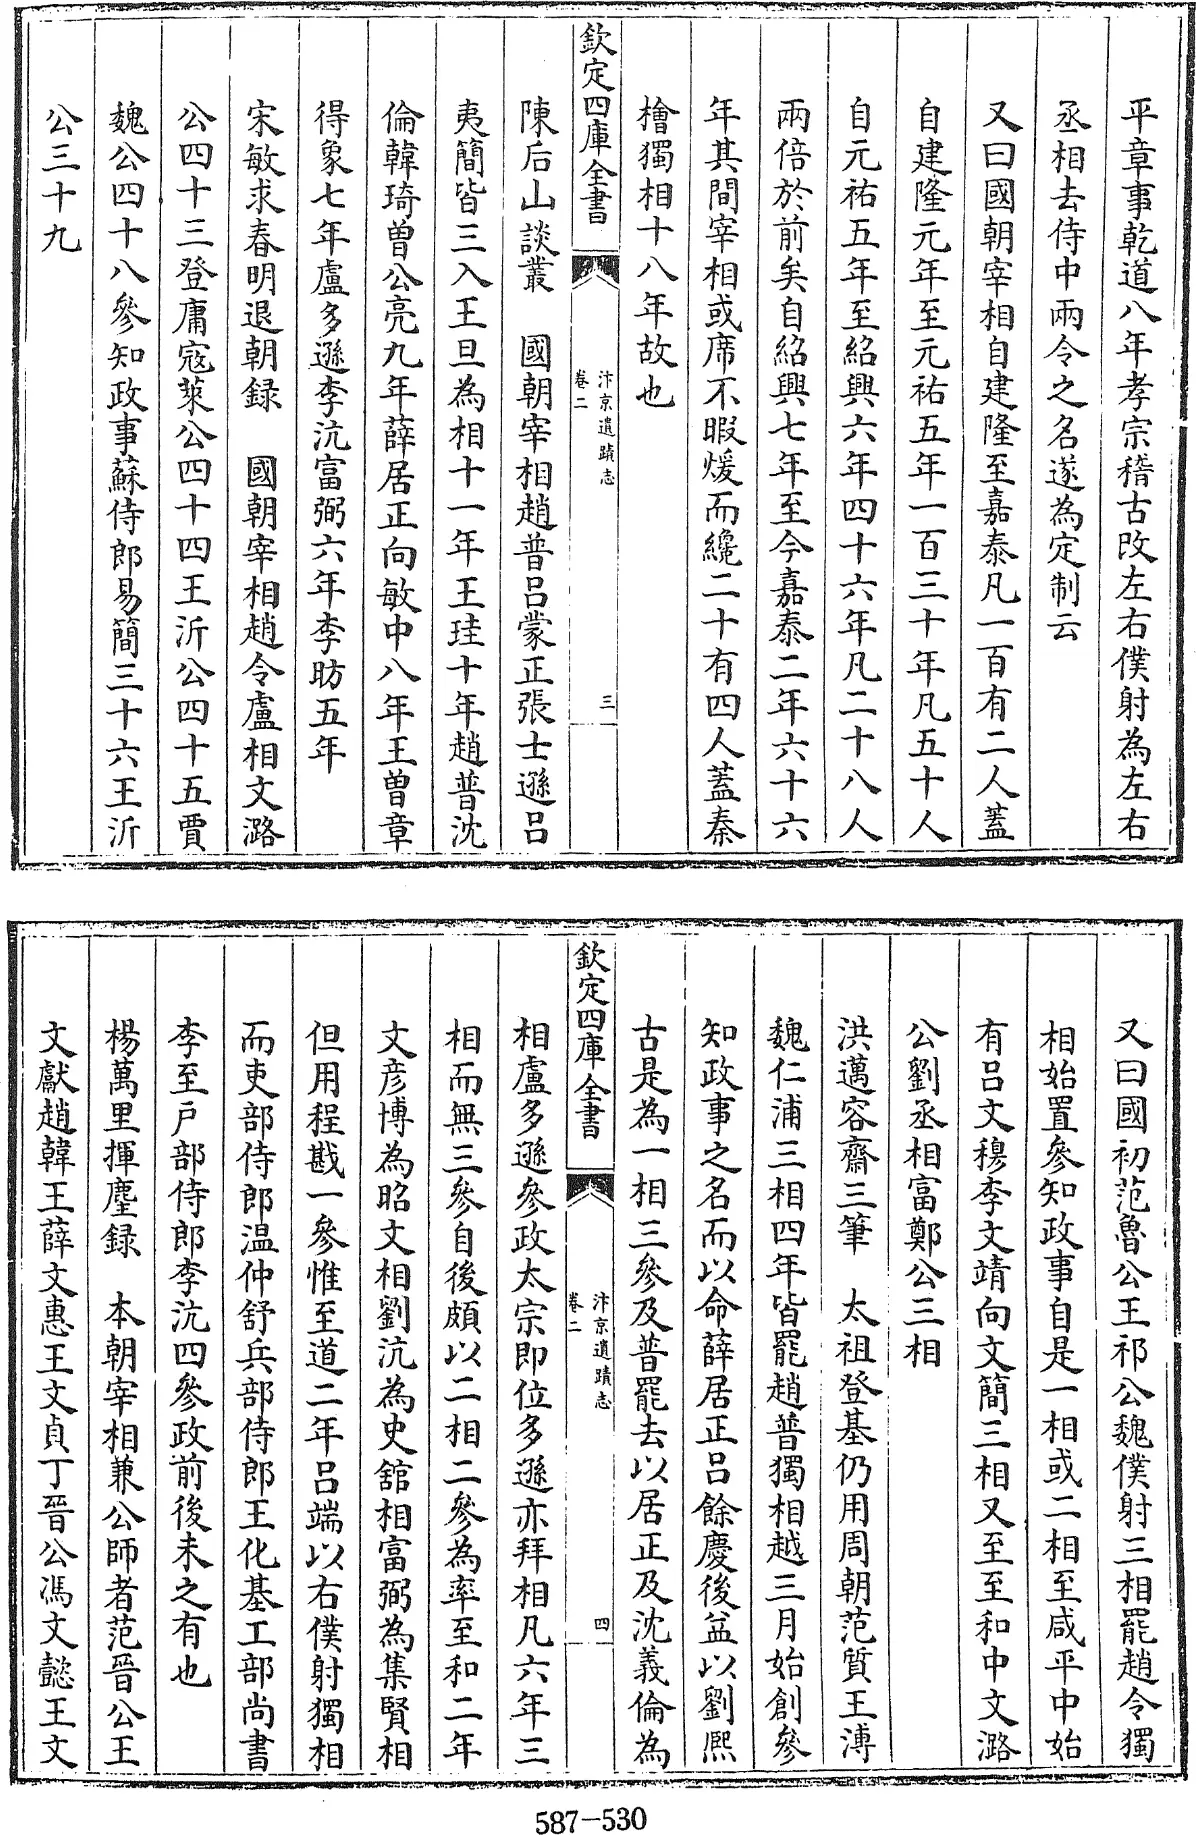 平章事乾道八年孝宗稽古改左右僕射為左右
丞相去侍中兩令之名遂為定制云
又曰國朝宰相自建隆至嘉泰凡一百有二人蓋
自建隆元年至元祐五年一百三十年凡五十人
自元祐五年至紹興六年四十六年凡二十八人
兩倍於前矣自紹興七年至今嘉泰二年六十六
年其間宰相或席不暇煖而纔二十有四人蓋秦
檜獨相十八年故也
欽定四庫全書
汴京遺蹟志
卷二
三
陳后山談叢　國朝宰相趙普吕蒙正張士遜吕
夷簡皆三入王旦為相十一年王珪十年趙普沈
倫韓琦曾公亮九年薛居正向敏中八年王曾章
得象七年盧多遜李沆富弼六年李昉五年
宋敏求春明退朝録　國朝宰相趙令盧相文潞
公四十三登庸寇萊公四十四王沂公四十五賈
魏公四十八參知政事蘇侍郎易簡三十六王沂
公三十九
又曰國初范魯公王祁公魏僕射三相罷趙令獨
相始置參知政事自是一相或二相至咸平中始
有吕文穆李文靖向文簡三相又至至和中文潞
公劉丞相富鄭公三相
洪邁容齋三筆　太祖登基仍用周朝范質王溥
魏仁浦三相四年皆罷趙普獨相越三月始創參
知政事之名而以命薛居正吕餘慶後益以劉熈
古是為一相三參及普罷去以居正及沈義倫為
欽定四庫全書
汴京遺蹟志
卷二
四
相盧多遜參政太宗即位多遜亦拜相凡六年三
相而無三參自後頗以二相二參為率至和二年
文彦博為昭文相劉沆為史舘相富弼為集賢相
但用程戡一參惟至道二年吕端以右僕射獨相
而吏部侍郎温仲舒兵部侍郎王化基工部尚書
李至户部侍郎李沆四參政前後未之有也
楊萬里揮麈録　本朝宰相兼公師者范晉公王
文獻趙韓王薛文惠王文貞丁晉公馮文懿王文
587-530